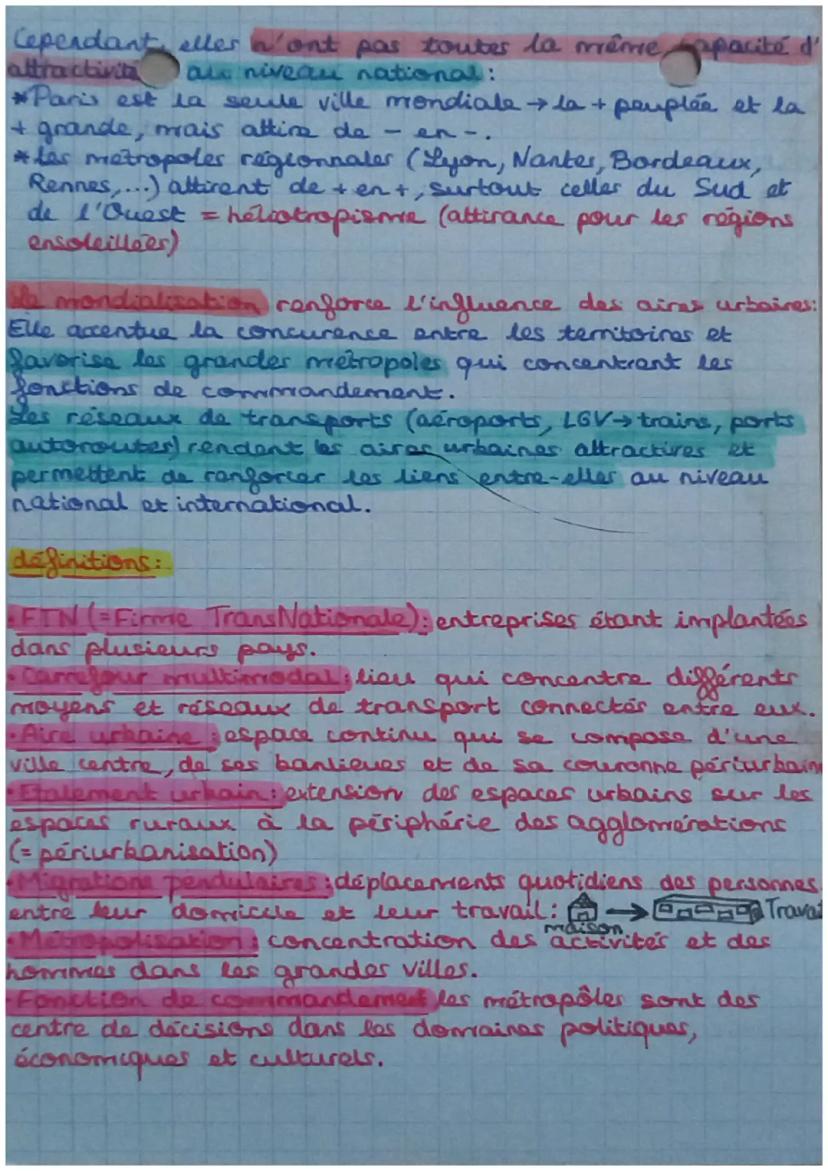 Cependant, elles n'ont pas toutes la même capacité d'
attractivité au niveau national :
*Paris est la seule ville mondiale → la + peuplée et la
+ grande, mais attire de - en -.
*les métropoles régionnales (Lyon, Nantes, Bordeaux,
Rennes, ...) attirent de + en +, surtout celles du Sud et
de l'Ouest = héliotropisme (attirance pour les régions
ensoleillées)
La mondialisation renforce l'influence des aires urbaines:
Elle accentue la concurence entre les territoires et
favorise les grandes métropoles qui concentrent les
fonctions de commandement.
Les réseaux de transports (aéroports, LGV→ trains, ports
autoroutes) rendent les aires urbaines attractives et
permettent de renforcer les liens entre-elles au niveau
national et international.
définitions:
•FTN (=Firme TransNationale): entreprises étant implantées
dans plusieurs pays.
•Carrefour multimodal: lieu qui concentre différents
moyens et réseaux de transport connectés entre eux.
•Aire urbaine: espace continu qui se compose d'une
ville centre, de ses banlieues et de sa couronne périurbain
•Etalement urbain: extension des espaces urbains sur les
espaces ruraux à la périphérie des agglomérations
(= périurbanisation)
•Migrations pendulaires: déplacements quotidiens des personnes
entre leur domicile et leur travail: → Travai
maison
•Métropolisation: concentration des activités et des
hommes dans les grandes villes.
•Fonction de commandement les métropôles sont des
centre de décisions dans les domaines politiques,
économiques et culturels.